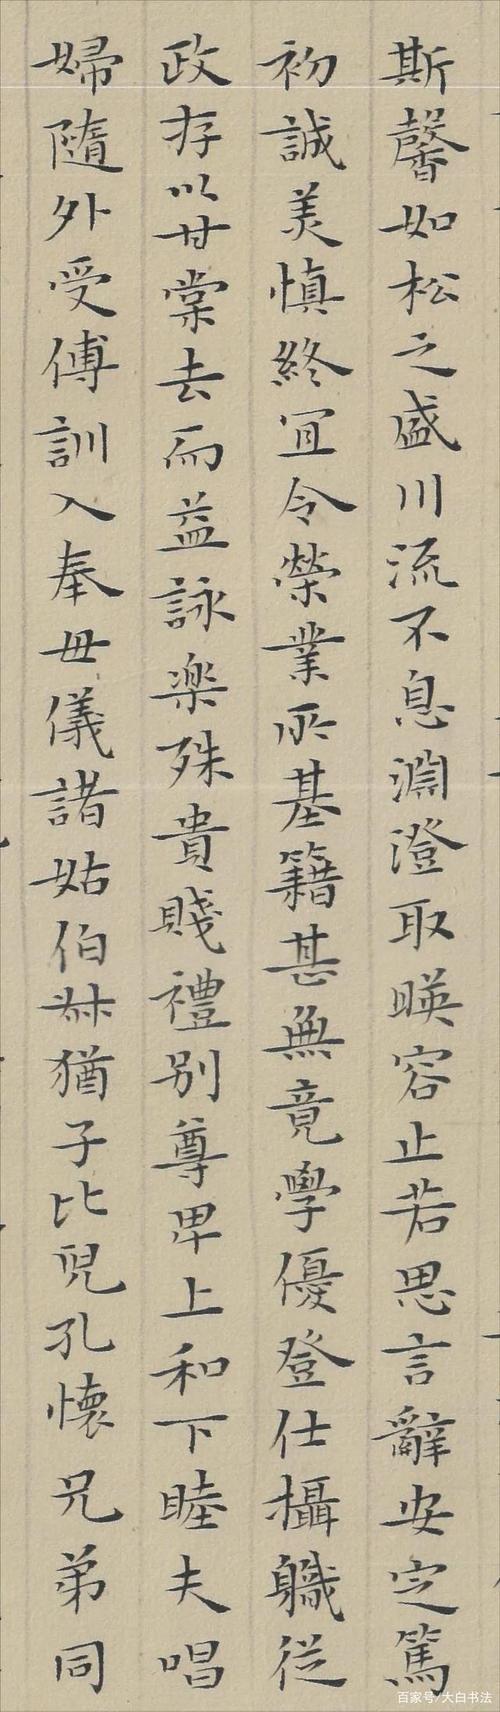 斯馨如松之盛川流不息淵澄取暎容止若思言辭安定篤
初誠美慎終宜令榮業所基籍甚無竟學優登仕攝職從
政存以甘棠去而益詠楽殊貴賤禮別尊卑上和下睦夫唱
婦隨外受傅訓入奉母儀諸姑伯叔猶子比兒孔懷兄弟同
百家号/大白书法